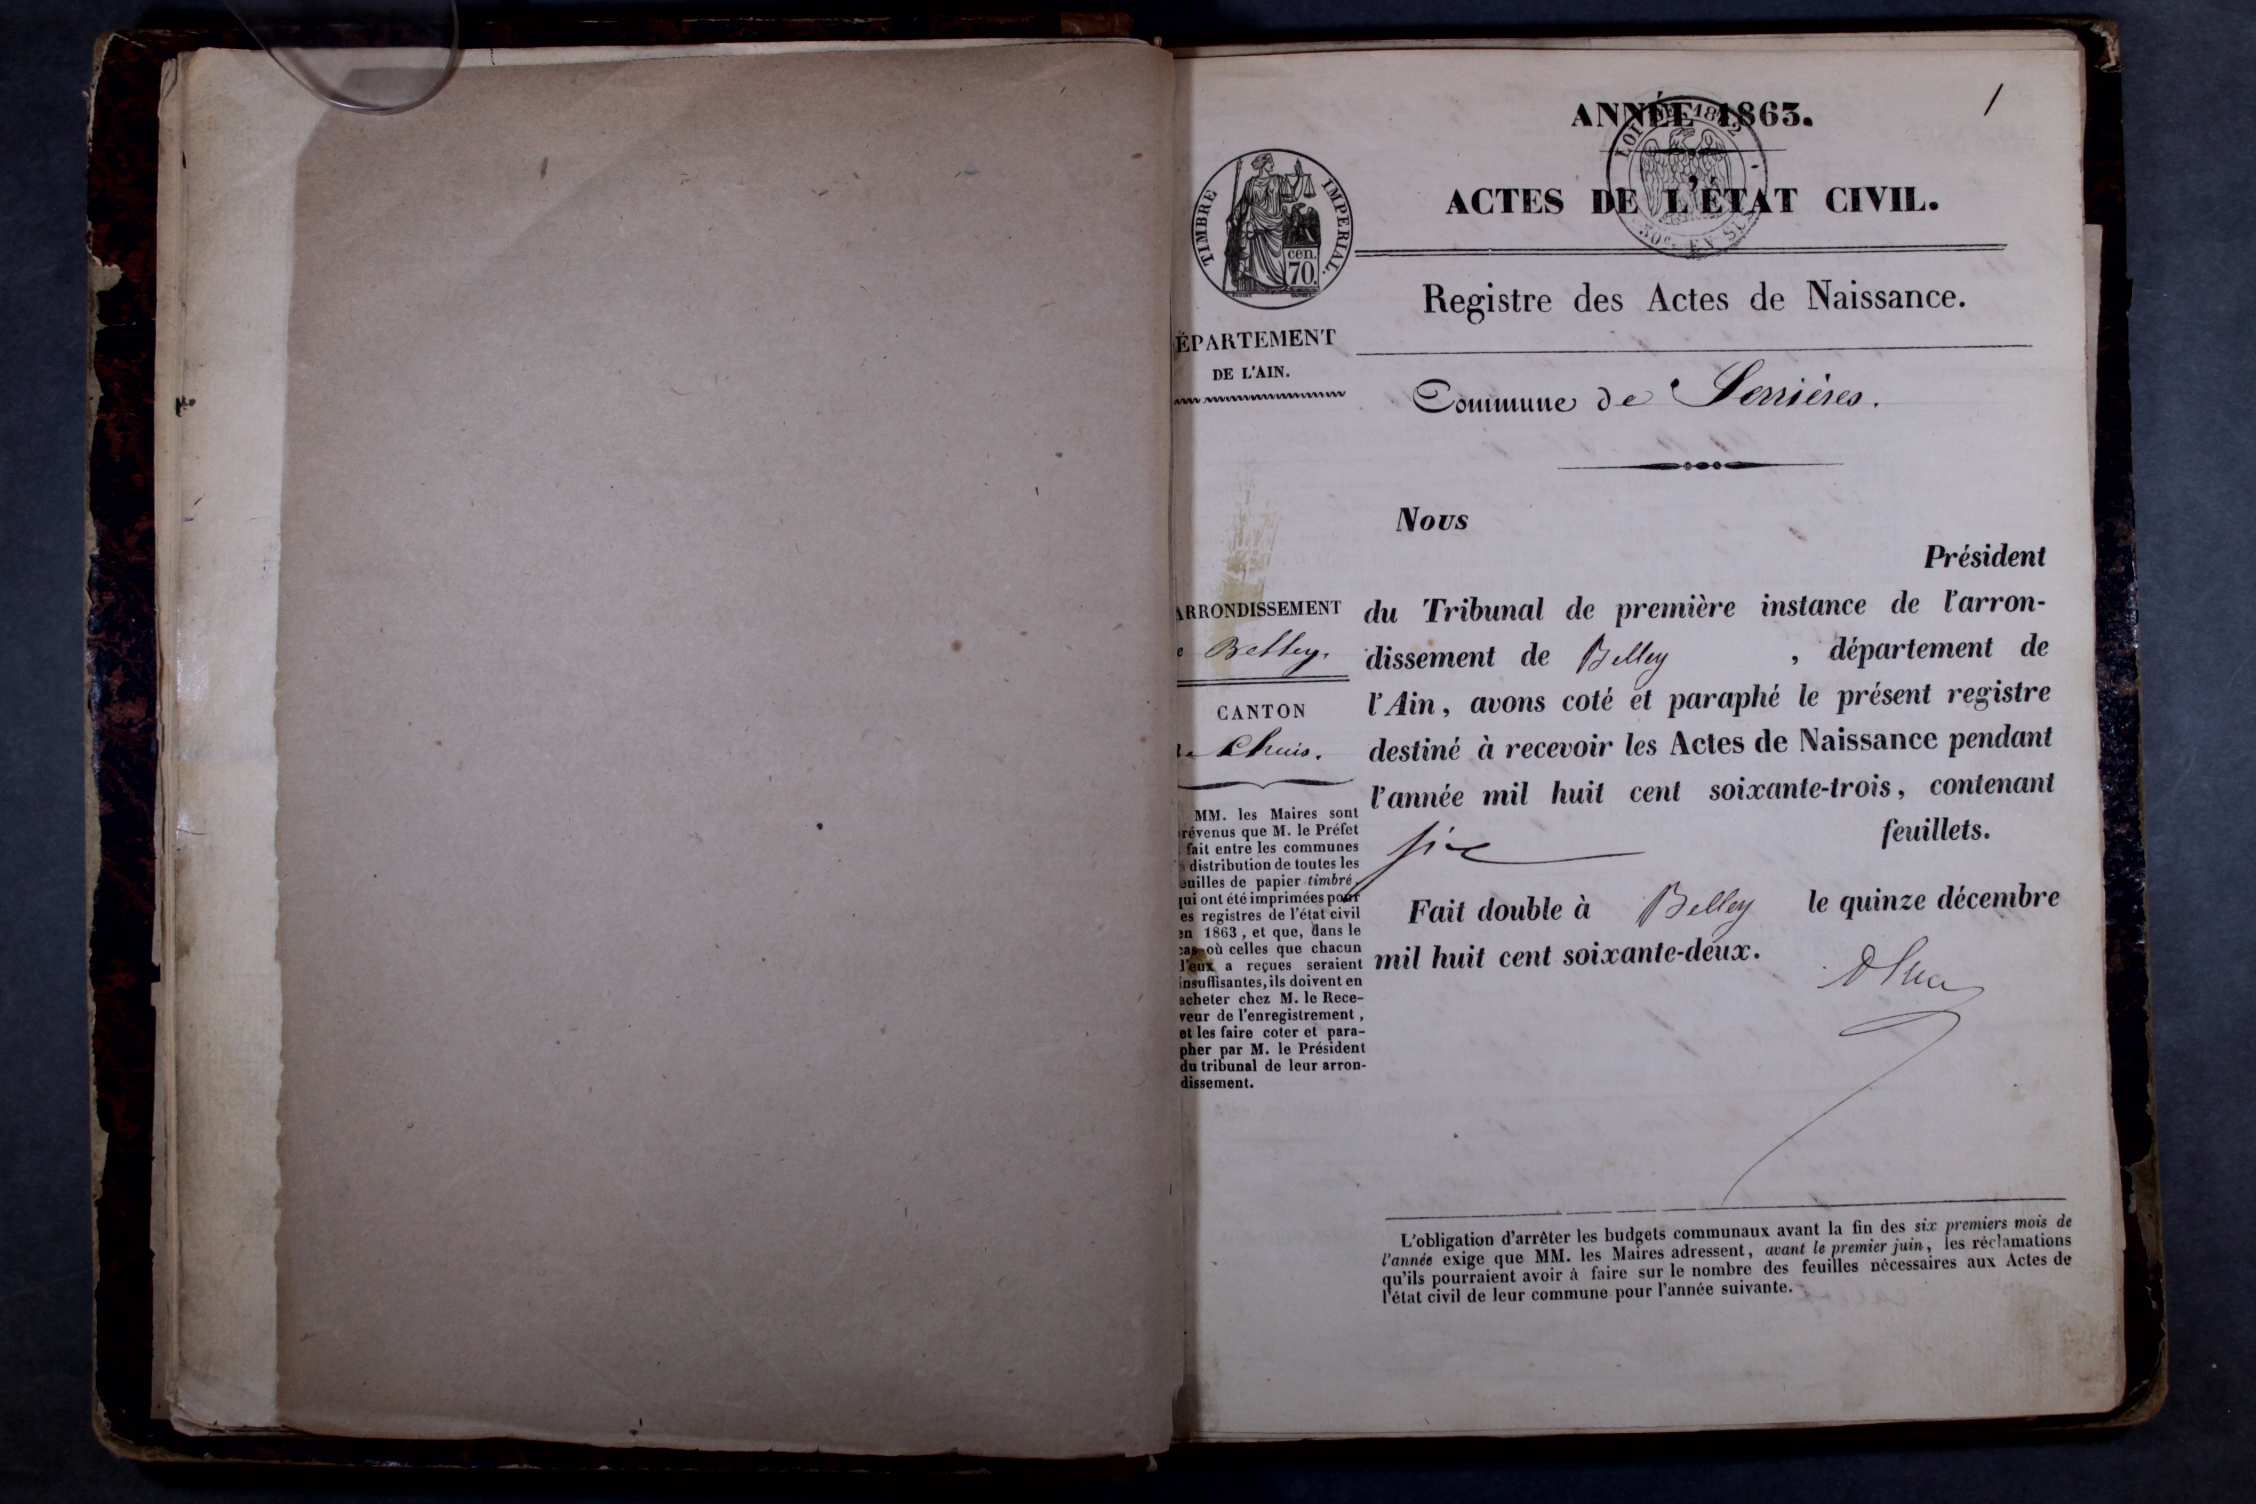 1
ANNÉE 1863.
LOI DE 1862
50c. EN SUS
ACTES DE L'ÉTAT CIVIL.
TIMBRE IMPÉRIAL.
cen.
70.
Registre des Actes de Naissance.
ÉPARTEMENT
DE L'AIN.
Commune de Serrières.
Nous
Président
du Tribunal de première instance de l'arron-
dissement de Belley , département de
l'Ain, avons coté et paraphé le présent registre
destiné à recevoir les Actes de Naissance pendant
l'année mil huit cent soixante-trois, contenant
six feuillets.
Fait double à Belley le quinze décembre
mil huit cent soixante-deux.
ARRONDISSEMENT
e Belley.
CANTON
Lhuis.
MM. les Maires sont
révenus que M. le Préfet
fait entre les communes
distribution de toutes les
euilles de papier timbré,
qui ont été imprimées pour
es registres de l'état civil
en 1863, et que, dans le
cas où celles que chacun
d'eux a reçues seraient
insuffisantes, ils doivent en
acheter chez M. le Rece-
veur de l'enregistrement,
et les faire coter et para-
pher par M. le Président
du tribunal de leur arron-
dissement.
L'obligation d'arrêter les budgets communaux avant la fin des six premiers mois de
l'année exige que MM. les Maires adressent, avant le premier juin, les réclamations
qu'ils pourraient avoir à faire sur le nombre des feuilles nécessaires aux Actes de
l'état civil de leur commune pour l'année suivante.